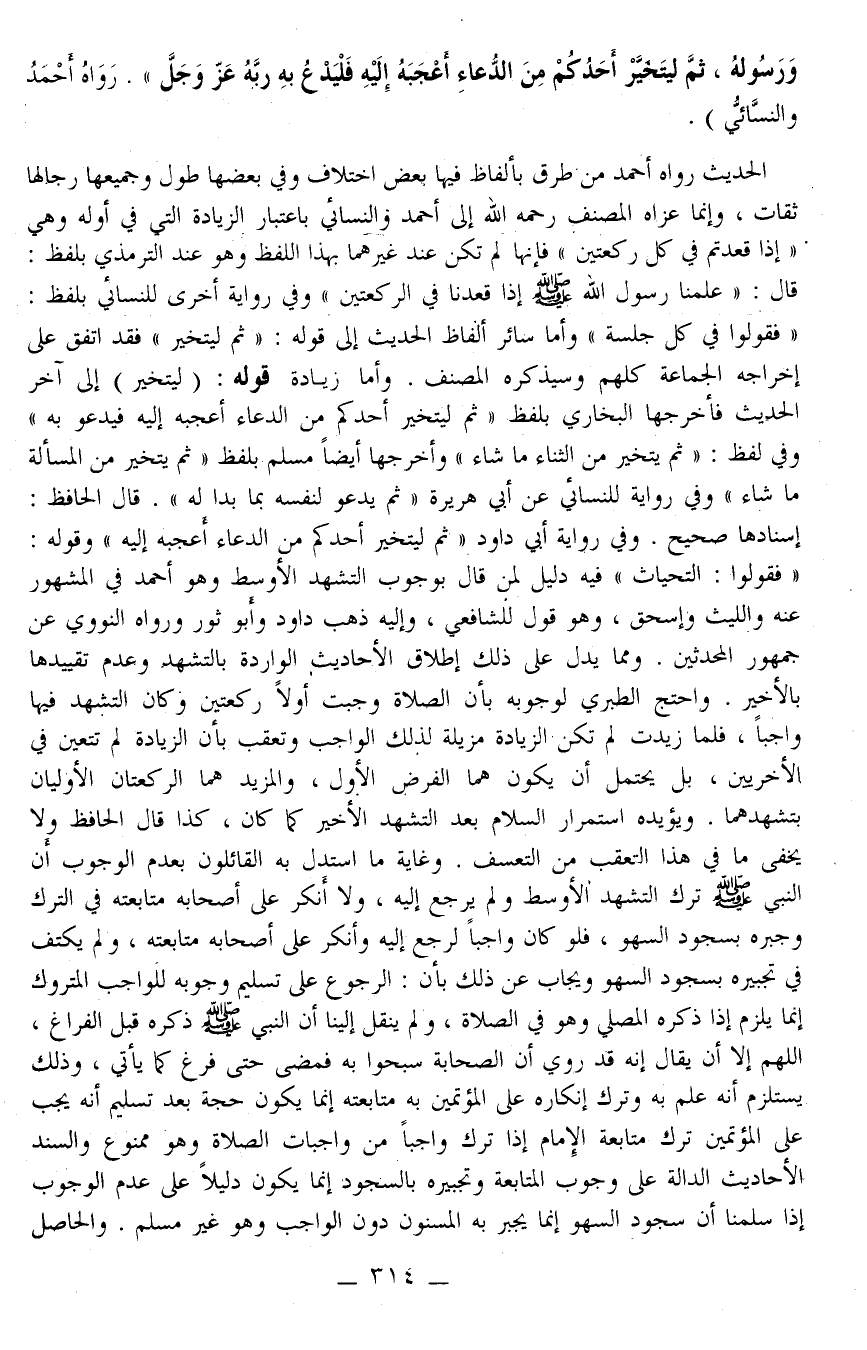 وَرَسُولهُ ، ثمَّ ليَتَخَيَّرْ أَحَدُكُمْ مِنَ الدُّعاءِ أَعْجَبَهُ إِلَيْهِ فَلْيَدْعُ بهِ ربَّهُ عَزّ وَجَلَّ » . رَوَاهُ أَحْمَدُ
والنسَّائيُّ ) .
الحديث رواه أحمد من طرق بألفاظ فيها بعض اختلاف وفي بعضها طول وجميعها رجالها
ثقات ، وإنما عزاه المصنف رحمه الله إلى أحمد والنسائي باعتبار الزيادة التي في أوله وهي
« إذا قعدتم في كل ركعتين » فإنها لم تكن عند غيرهما بهذا اللفظ وهو عند الترمذي بلفظ :
قال : « علمنا رسول الله ﷺ إذا قعدنا في الركعتين » وفي رواية أخرى للنسائي بلفظ :
« فقولوا في كل جلسة » وأما سائر ألفاظ الحديث إلى قوله : « ثم ليتخير » فقد اتفق على
إخراجه الجماعة كلهم وسيذكره المصنف . وأما زيـادة قوله : ( ليتخير ) إلى آخر
الحديث فأخرجها البخاري بلفظ « ثم ليتخير أحدكم من الدعاء أعجبه إليه فيدعو به »
وفي لفظ : « ثم يتخير من الثناء ما شاء » وأخرجها أيضاً مسلم بلفظ « ثم يتخير من المسألة
ما شاء » وفي رواية للنسائي عن أبي هريرة « ثم يدعو لنفسه بما بدا له » . قال الحافظ :
إسنادها صحيح . وفي رواية أبي داود « ثم ليتخير أحدكم من الدعاء أعجبه إليه » وقوله :
« فقولوا : التحيات » فيه دليل لمن قال بوجوب التشهد الأوسط وهو أحمد في المشهور
عنه والليث وإسحق ، وهو قول للشافعي ، وإليه ذهب داود وأبو ثور ورواه النووي عن
جمهور المحدثين . ومما يدل على ذلك إطلاق الأحاديث الواردة بالتشهد وعدم تقييدها
بالأخير . واحتج الطبري لوجوبه بأن الصلاة وجبت أولاً ركعتين وكان التشهد فيها
واجباً ، فلما زيدت لم تكن الزيادة مزيلة لذلك الواجب وتعقب بأن الزيادة لم تتعين في
الأخريين ، بل يحتمل أن يكون هما الفرض الأول ، والمزيد هما الركعتان الأوليان
بتشهدهما . ويؤيده استمرار السلام بعد التشهد الأخير كما كان ، كذا قال الحافظ ولا
يخفى ما في هذا التعقب من التعسف . وغاية ما استدل به القائلون بعدم الوجوب أن
النبي ﷺ ترك التشهد الأوسط ولم يرجع إليه ، ولا أنكر على أصحابه متابعته في الترك
وجبره بسجود السهو ، فلو كان واجباً لرجع إليه وأنكر على أصحابه متابعته ، ولم يكتف
في تجبيره بسجود السهو ويجاب عن ذلك بأن : الرجوع على تسليم وجوبه للواجب المتروك
إنما يلزم إذا ذكره المصلي وهو في الصلاة ، ولم ينقل إلينا أن النبي ﷺ ذكره قبل الفراغ ،
اللهم إلا أن يقال إنه قد روي أن الصحابة سبحوا به فمضى حتى فرغ كما يأتي ، وذلك
يستلزم أنه علم به وترك إنكاره على المؤتمين به متابعته إنما يكون حجة بعد تسليم أنه يجب
على المؤتمين ترك متابعة الإمام إذا ترك واجباً من واجبات الصلاة وهو ممنوع والسند
الأحاديث الدالة على وجوب المتابعة وتجبيره بالسجود إنما يكون دليلاً على عدم الوجوب
إذا سلمنا أن سجود السهو إنما يجبر به المسنون دون الواجب وهو غير مسلم . والحاصل
— ٣١٤ —